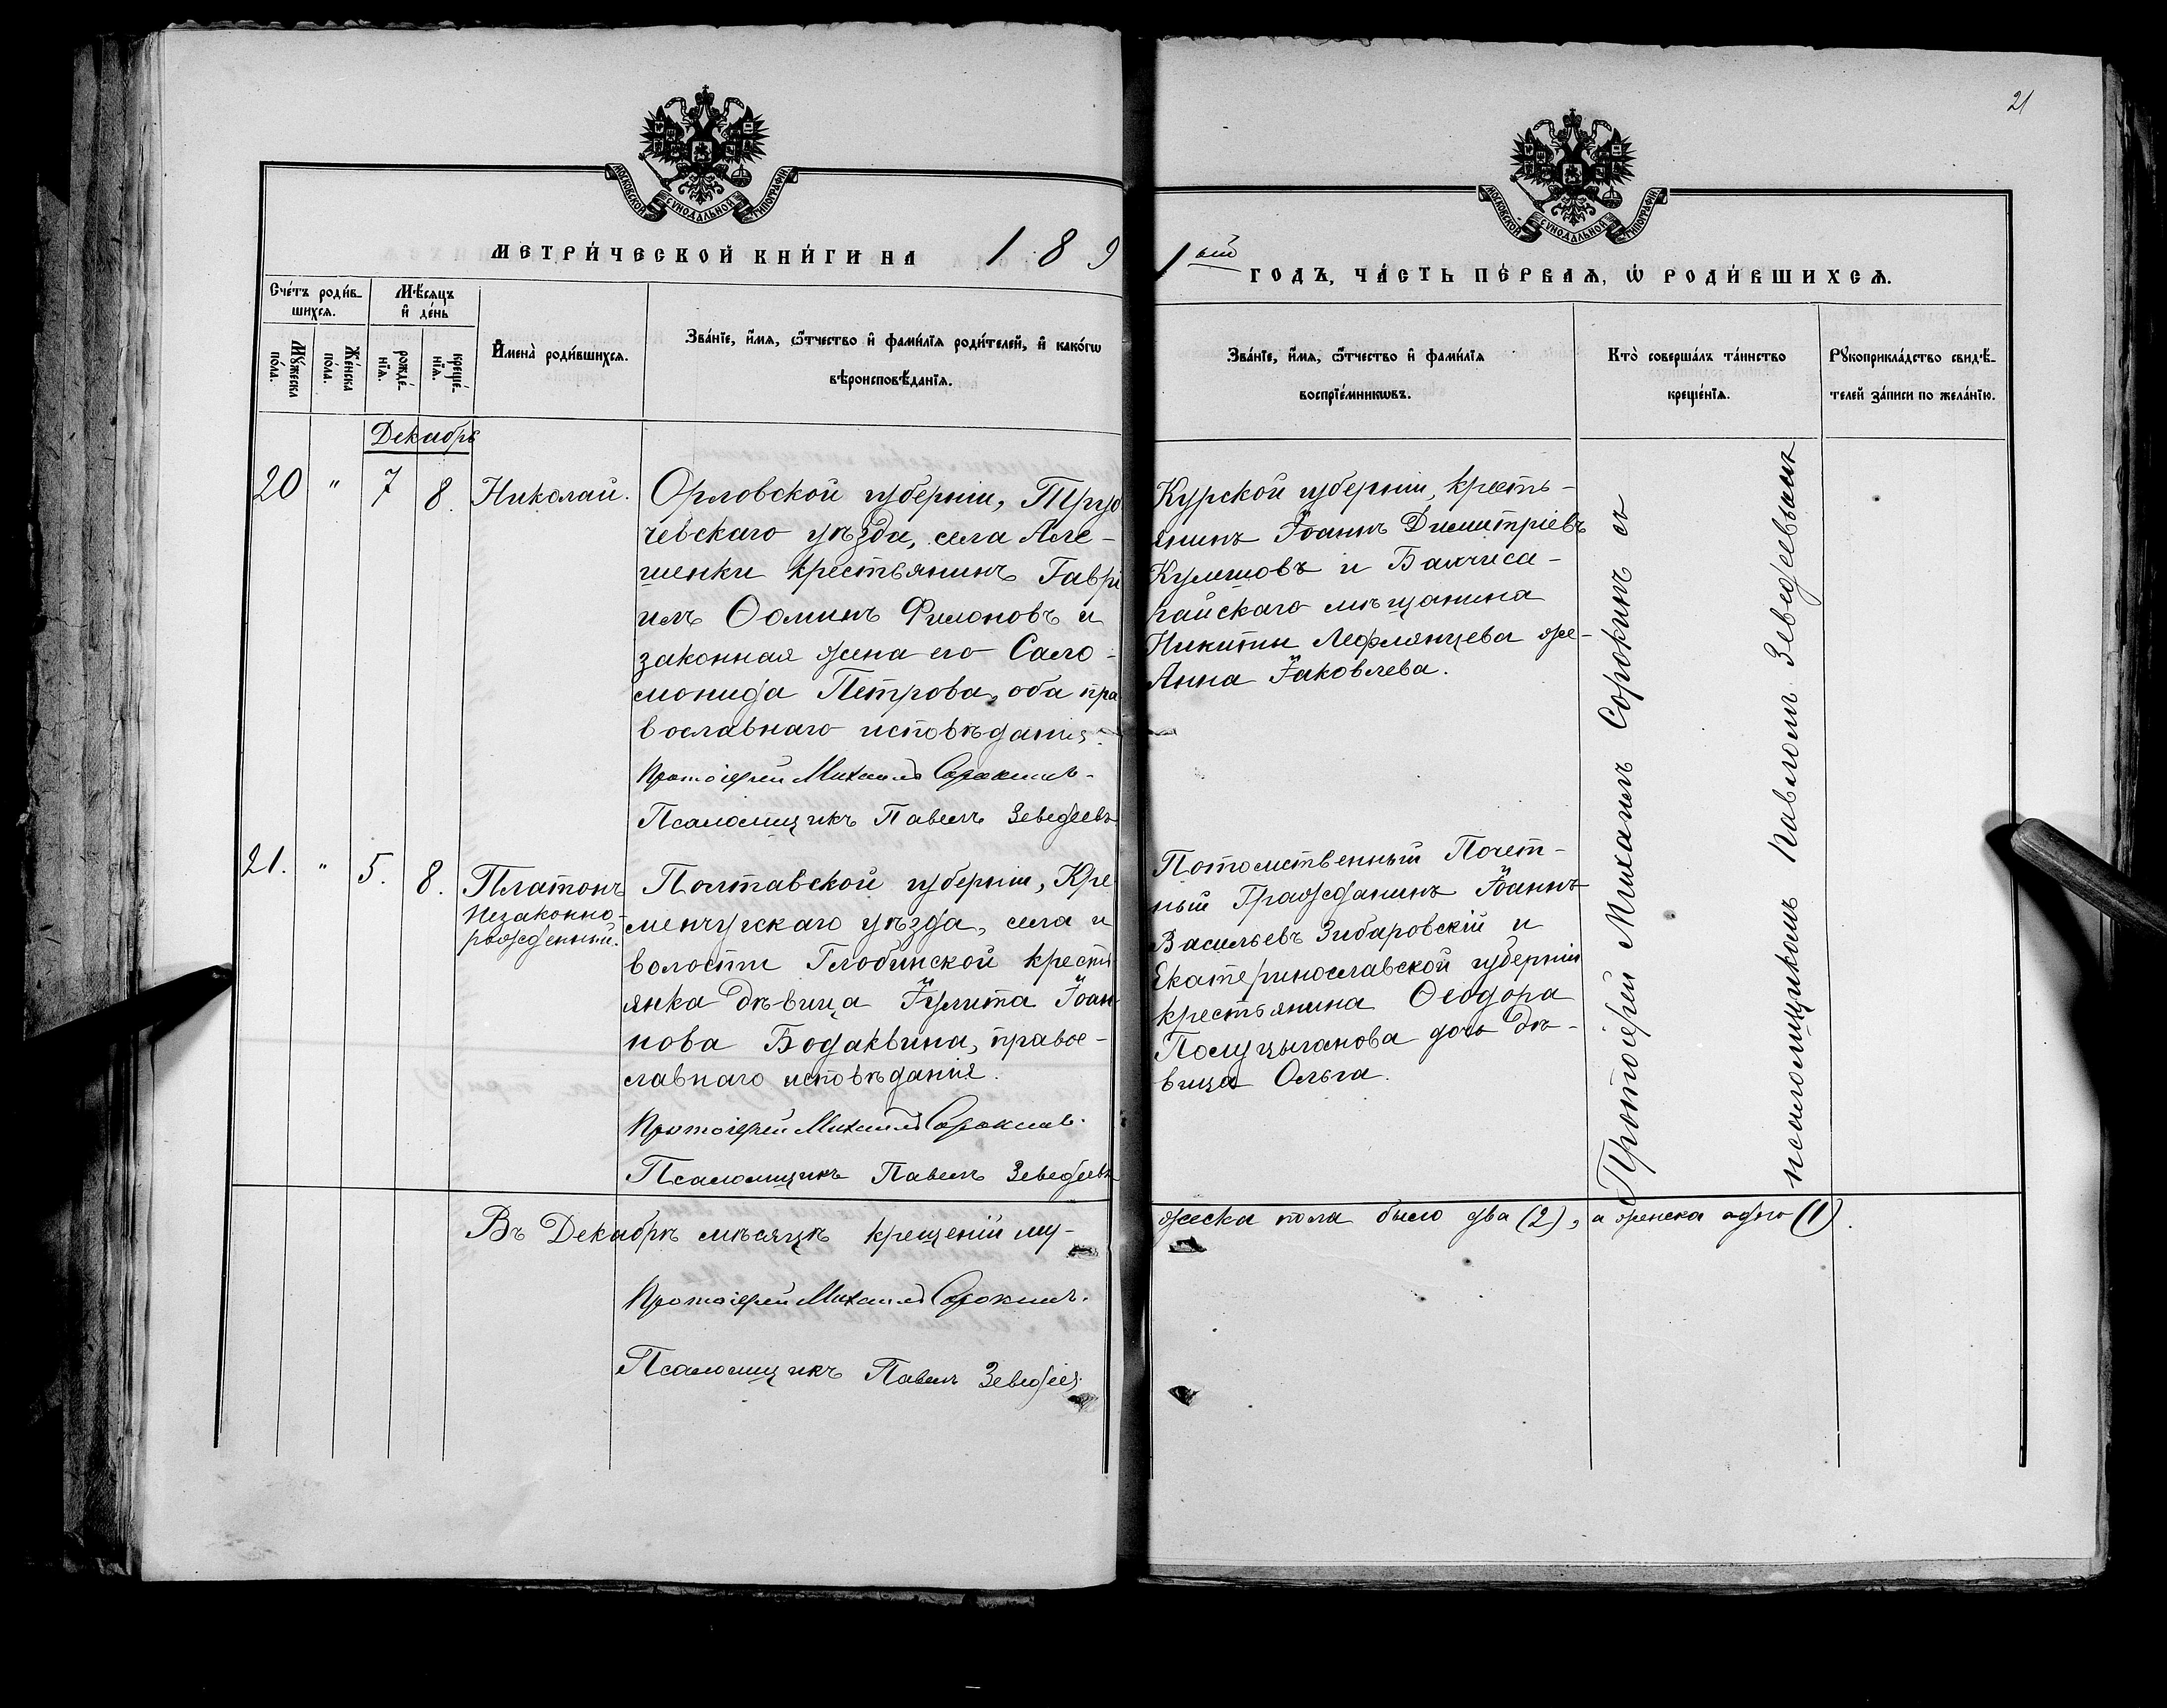 21
МОСКОВСКОЙ СѴНОДАЛЬНОЙ ТИПОГРАФІИ
МОСКОВСКОЙ СѴНОДАЛЬНОЙ ТИПОГРАФІИ
МЕТРИ́ЧЕСКОЙ КНИ́ГИ НА 189
1ый ГОДЪ, ЧА́СТЬ ПЕ́РВАѦ, Ѡ҆ РОДИ́ВШИХСѦ.
Сче́тъ роди́в-
шихсѧ.
Мꙋ́жеска
пола.
Же́нска
пола.
Мѣ́сѧцъ
и҆ де́нь
рожде́-
нїѧ.
креще́-
нїѧ.
И҆мена̀ роди́вшихсѧ.
Зва́нїе, и҆́мѧ, ѻ҆́тчество и҆ фами́лїѧ роди́телей, и҆ како́гѡ
вѣроисповѣ́данїѧ.
Зва́нїе, и҆́мѧ, ѻ҆́тчество и҆ фами́лїѧ
воспрїе́мникѡвъ.
Кто̀ соверша́лъ та́инство
креще́нїѧ.
Рꙋкоприкла́дство свидѣ́-
телей за́писи по жела́нїю.
Декабрь
20 " 7 8. Николай.
Орловской губерніи, Труб
чевскаго уѣзда, села Але-
шенки крестьянинъ Гаврі
илъ Ѳоминъ Филоновъ и
законная жена его Сало-
монида Петрова, оба пра
вославнаго исповѣданія.
Протоіерей Михаилъ Сорокинъ.
Псаломщикъ Павелъ Зеведеевъ
Курской губерніи, кресть-
янинъ Іоаннъ Димитріевъ
Кулешовъ и Бахчиса-
райскаго мѣщанина
Никиты Лефлянцева же-
Анна Іаковлева.
Протоіерей Михаилъ Сорокинъ съ
псаломщикомъ Павломъ Зеведеевымъ
21. " 5. 8. Платонъ
Незаконно-
рожденный.
Полтавской губерніи, Кре
менчугскаго уѣзда, села и
волости Глобинской кресть
янка дѣвица Іулита Іоан
нова Бодаквина, правос-
славнаго исповѣданія.
Протоіерей Михаилъ Сорокинъ.
Псаломщикъ Павелъ Зеведеевъ
Потомственный Почет-
ный Гражданинъ Іоаннъ
Васильевъ Зибаровскій и
Екатеринославской губерніи
крестьянина Ѳеодора
Полуцыганова дочь дѣ-
вица Ольга.
Въ Декабрѣ мѣсяцѣ крещеній му-
жеска пола было два (2), а женска одно (1).
Протоіерей Михаилъ Сорокинъ.
Псаломщикъ Павелъ Зеведеев